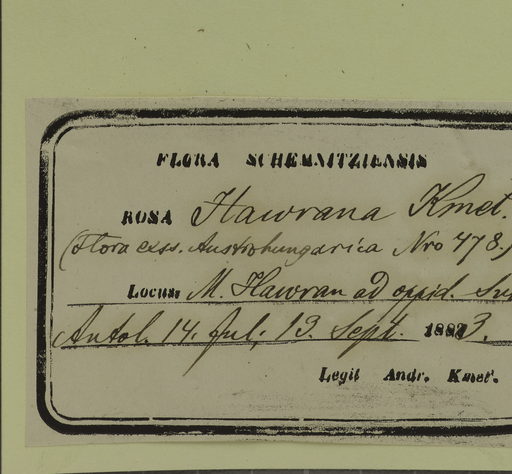 FLORA SCHEMNITZIENSIS
ROSA Hawrana Kmet.
(Flora exss. Austrohungarica Nro 478.)
LOCUS M. Hawran ad oppid.
Antol. 14. Jul. 13. Sept. 1883.
Legit Andr. Kmeť.